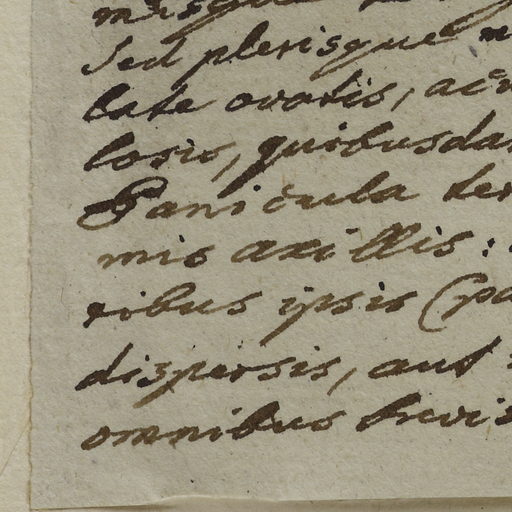 sed plerisque
late ovatis, acu
losis, quibusda
Panicula ter
mis axillis:
ribus ipsis (pa
dispersis, aut
omnibus brevi